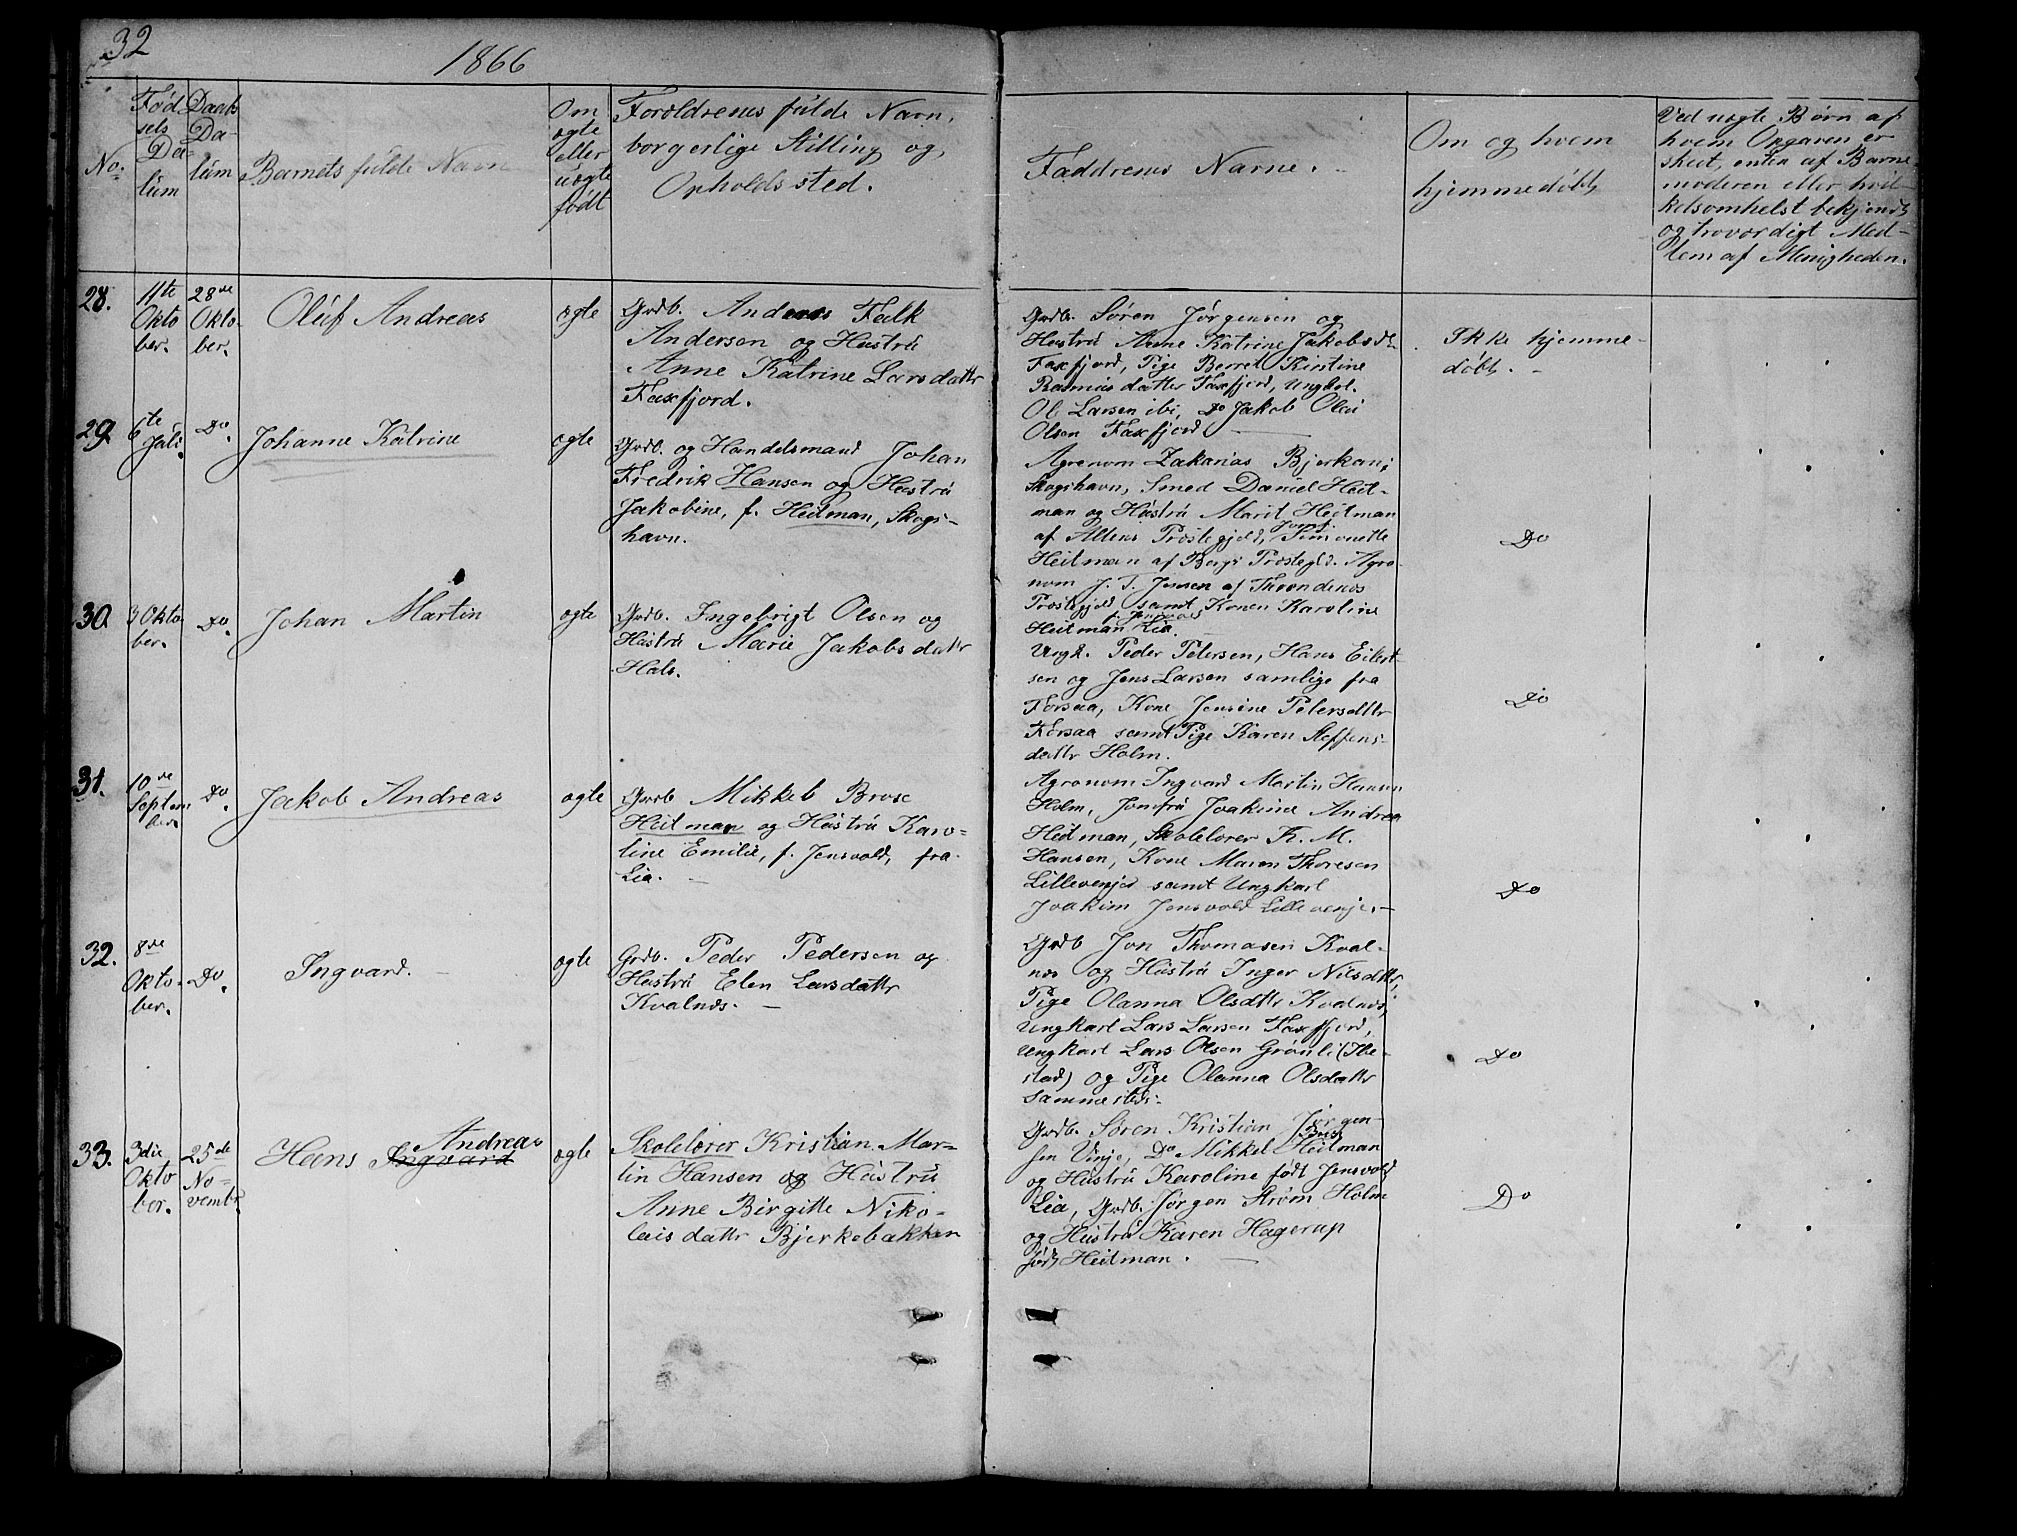 32
1866
No.
Fød-
sels
Da-
tum
Daabs
Da-
tum
Barnets fulde Navn
Om
ægte
eller
uægte
født
Forældrenes fulde Navn,
borgerlige Stilling og
Opholdssted.
Faddrenes Navne.
Om og hvem
hjemmedøbt
Ved uægte Børn af
hvem Opgaven er
skeet, enten af Barne-
moderen eller hvil-
kelsomhelst bekjendt
og troværdigt Med-
lem af Menigheden.
28.
11te
Okto
ber.
28de
Okto-
ber.
Oluf Andreas
ægte
Grdb. Anders Falk
Andersen og Hustru
Anne Katrine Larsdattr
Faxfjord.
Grdb. Søren Jørgensen og
Hustru Anne Katrine Jakobsdtr
Faxfjord, Pige Berret Kirstine
Rasmusdatter Faxfjord, Ungkl.
Ol Larsen ibi, Do Jakob Olai
Olsen Faxfjord
Ikke hjemme-
døbt. -
29.
6te
Juli.
Do.
Johanne Katrine
ægte
Grdb. og Handelsmand Johan
Fredrik Hansen og Hustru
Jakobine, f. Heitman, Skogs-
havn.
Agronom Zakarias Bjerkan,
Skogshavn, Smed Daniel Heit-
man og Hustru Marit Heitman
af Altens Præstegjeld, Jomf. Simonette
Heitman af Bergs Præstegld. Agro-
nom J. T. Jensen af Throndenæs
Præstegjeld samt Konen Karoline
Heitman f. Jensvold Lia.
Do
30.
3 Okto
ber.
Do.
Johan Martin
ægte
Grdb. Ingebrigt Olsen og
Hustru Marie Jakobsdattr
Hals.
Ungk. Peder Petersen, Hans Eilert-
sen og Jens Larsen samlige fra
Forsaa, Kone Jensine Petersdattr
Forsaa samt Pige Karen Steffens-
dattr Holm.
Do
31.
10de
Septem
ber.
Do.
Jakob Andreas
ægte
Grdb Mikkel Brose
Heitman og Hustru Karo-
line Emilie, f. Jensvold, fra
Lia. -
Agronom Ingvard Martin Hansen
Holm, Jomfru Joakime Andrea
Heitman, Skolelærer K. M.
Hansen, Kone Maren Thoresen
Lillevenjer samt Ungkarl
Joakim Jensvold Lillevenje. -
Do
32.
8de
Okto-
ber.
Do.
Ingvard. -
ægte
Grdb. Peder Pedersen og
Hustru Elen Larsdattr
Kvalnæs. -
Grdb Jon Thomasen Kval-
næs og Hustru Inger Nilsdattr,
Pige Olanna Olsdttr Kvalnæs,
Ungkarl Lars Larsen Faxfjord,
Ungkarl Lars Olsen Grønli (Ibe-
stad) og Pige Olanna Olsdattr
sammesteds. -
Do
33.
3die
Okto
ber.
25de
No-
vembr.
Andreas
Hans Ingvard
ægte
Skolelærer Kristian Mar-
tin Hansen og Hustru
Anne Birgitte Niko-
laisdattr Bjerkebakken
Grdb. Søren Kristian Jørgen-
sen Vinje, Do Mikkel Heitman
og Hustru Karoline født Jensvold
Lia, Grdb. Jørgen Strøm Holm
og Hustru Karen Hagerup
født Heitman.
Do